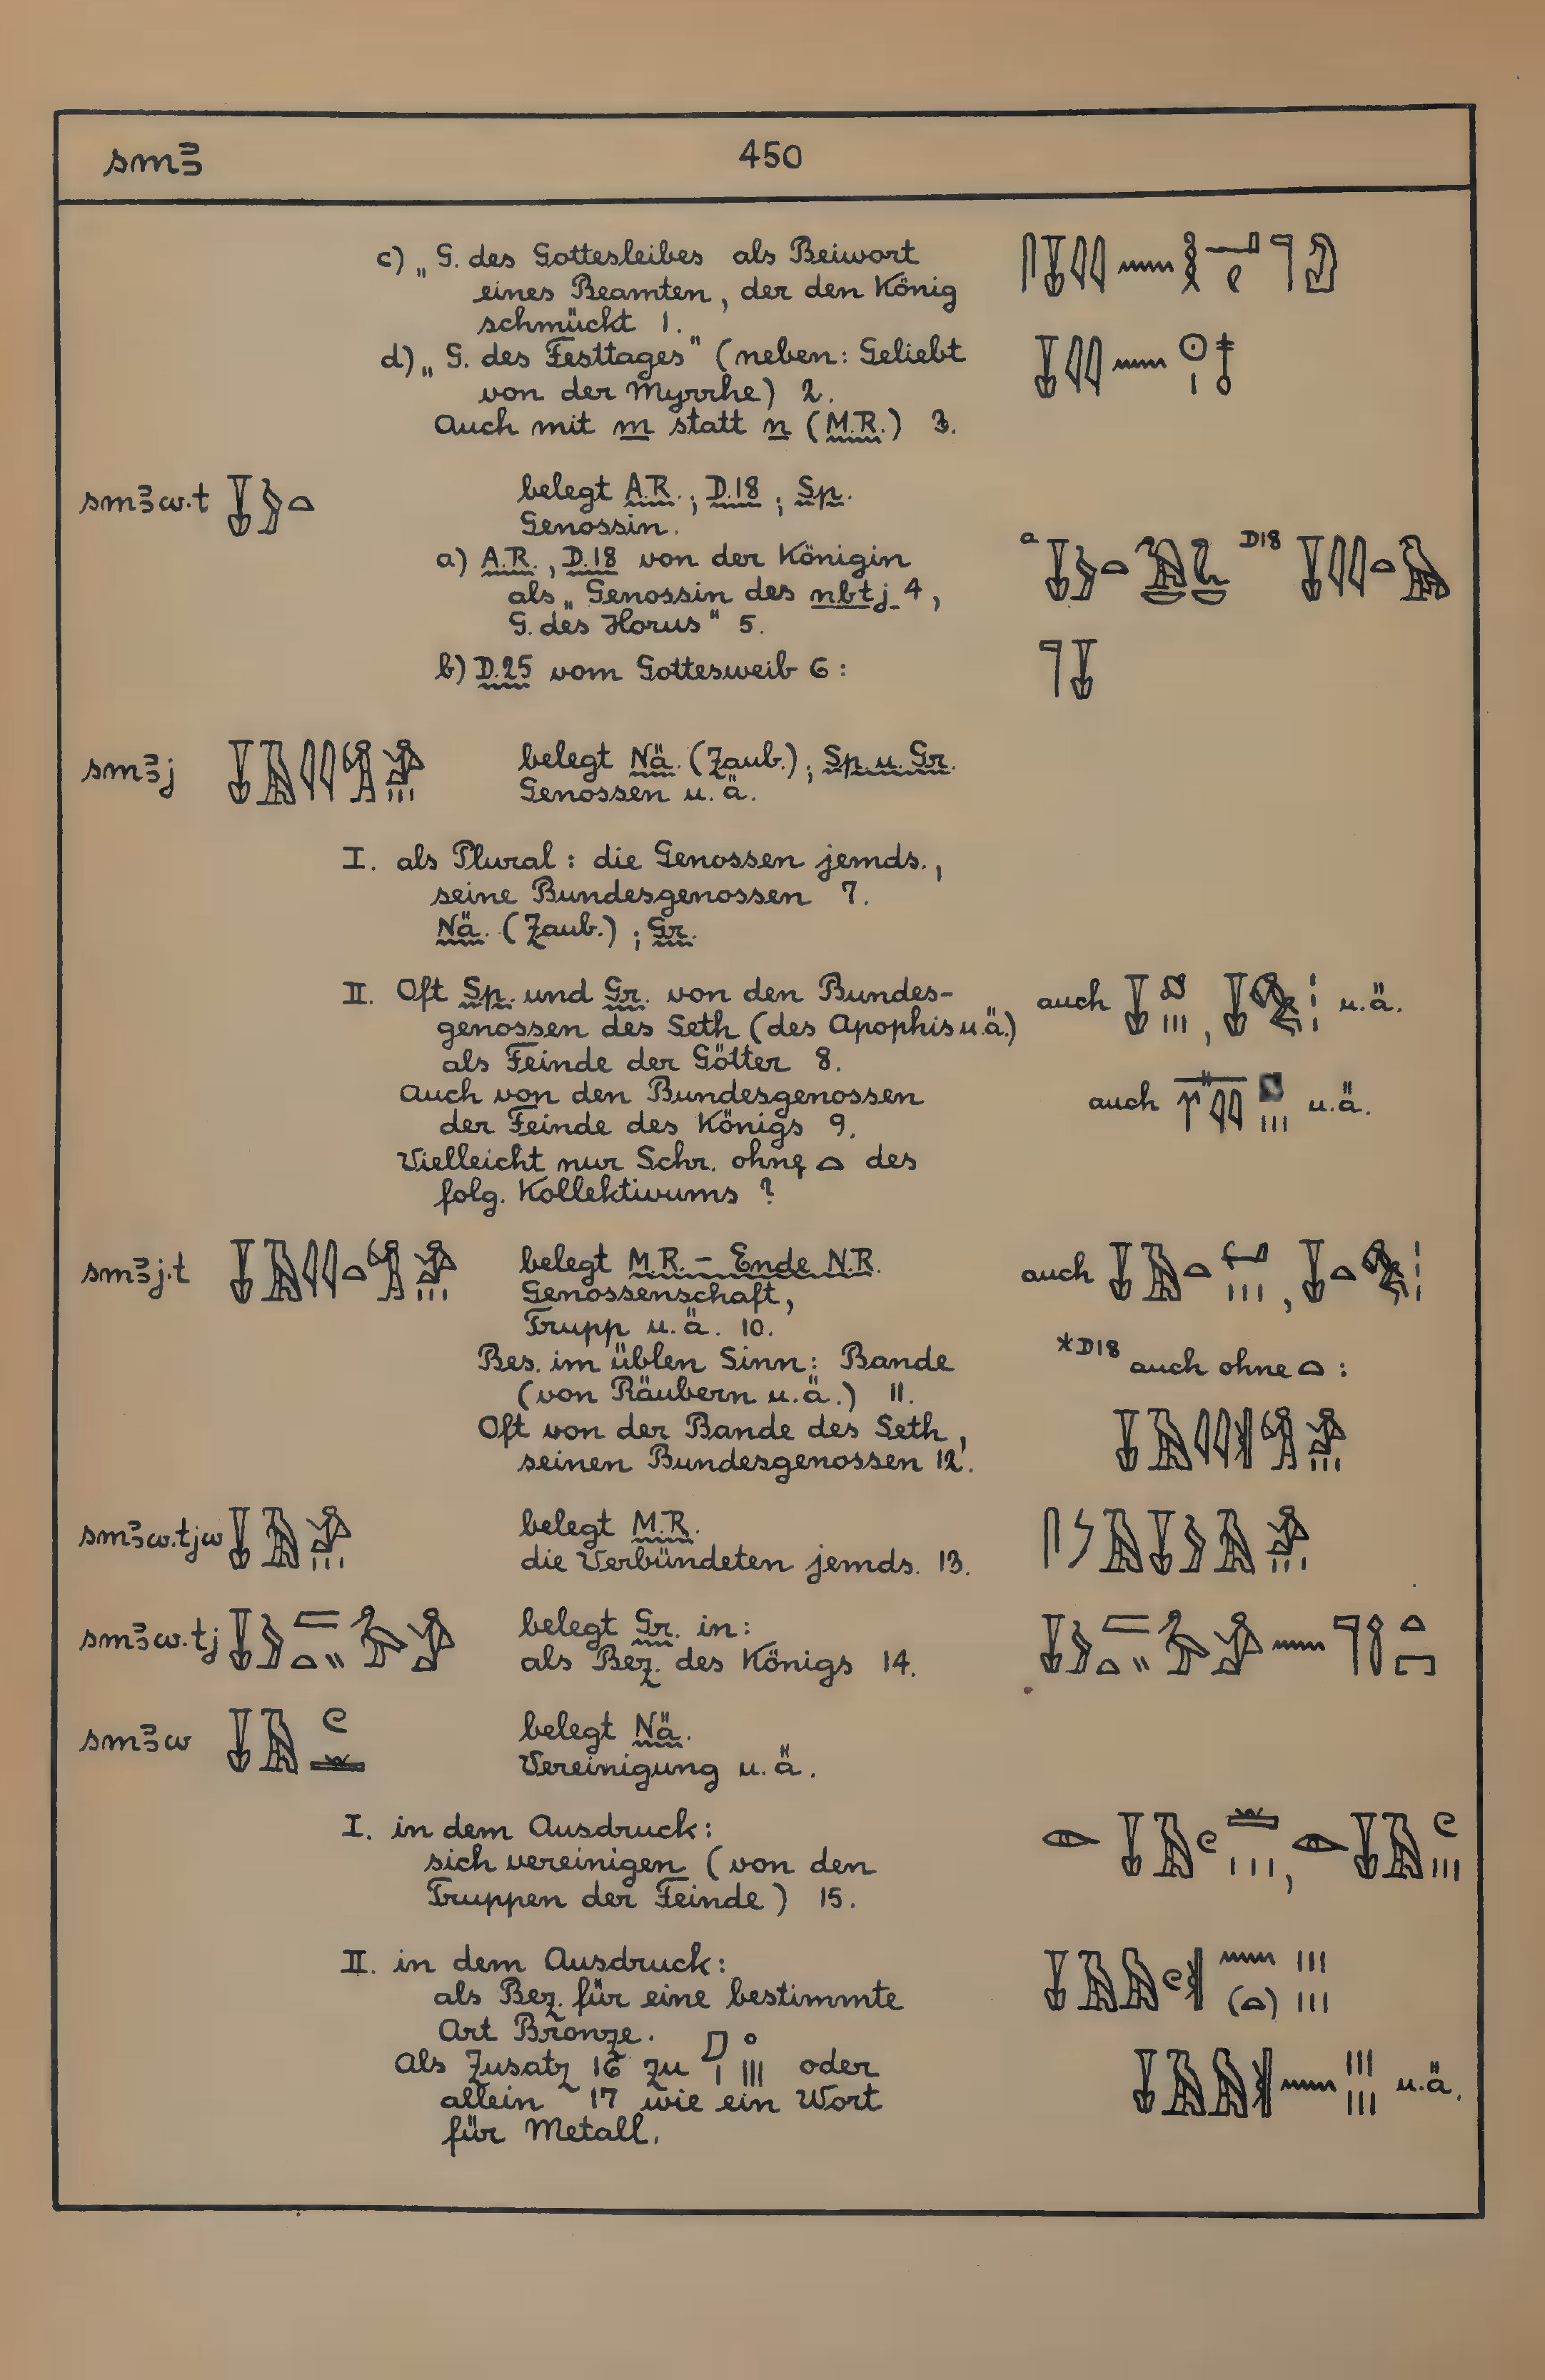 smꜣ 450
c) „G. des Gottesleibes als Beiwort
eines Beamten, der den König
schmückt 1.
d) „G. des Festtages" (neben: Geliebt
von der Myrrhe) 2.
Auch mit m statt n (M.R.) 3.
smꜣw.t belegt A.R.; D.18; Sp.
Genossin.
a) A.R., D.18 von der Königin
als „Genossin des nbtj 4,
G. des Horus" 5.
a D18
b) D.25 vom Gottesweib 6:
smꜣj belegt Nä. (Zaub.); Sp. u. Gr.
Genossen u. ä.
I. als Plural: die Genossen jemds.,
seine Bundesgenossen 7.
Nä. (Zaub.); Gr.
II. Oft Sp. und Gr. von den Bundes-
genossen des Seth (des Apophis u.ä.)
als Feinde der Götter 8.
auch , u.ä.
Auch von den Bundesgenossen
der Feinde des Königs 9.
auch u.ä.
Vielleicht nur Schr. ohne des
folg. Kollektivums ?
smꜣj.t belegt M.R. – Ende N.R.
Genossenschaft,
Trupp u. ä. 10.
auch ,
Bes. im üblen Sinn: Bande
(von Räubern u. ä.) 11.
*D18 auch ohne :
Oft von der Bande des Seth,
seinen Bundesgenossen 12.
smꜣw.tjw belegt M.R.
die Verbündeten jemds. 13.
smꜣw.tj belegt Gr. in:
als Bez. des Königs 14.
smꜣw belegt Nä.
Vereinigung u. ä.
I. in dem Ausdruck:
sich vereinigen (von den
Truppen der Feinde) 15.
II. in dem Ausdruck:
als Bez. für eine bestimmte
Art Bronze.
Als Zusatz 16 zu oder
allein 17 wie ein Wort
für Metall.
u.ä.